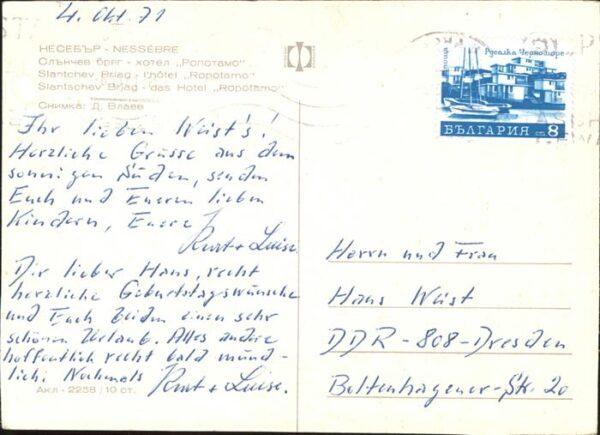 4. Okt. 71
НЕСЕБЪР - NESSÈBRE
Слънчев бряг - хотел „Ропотамо"
Slantchev Briag - l'hôtel „Ropotamo"
Slantschev Brjag - das Hotel „Ropotamo"
Снимка: Д. Влаев
Ihr lieben Weist's!
Herzliche Grüsse aus dem
sonnigen Süden, senden
Euch und Eueren lieben
Kindern, Euere
Kurt + Luise.
Dir lieber Hans, recht
herzliche Geburtstagswünsche
und Euch beiden einen sehr
schönen Urlaub. Alles andere
hoffentlich recht bald münd-
lich. Nochmals Kurt + Luise.
Акл - 2258 / 10 ст.
поща
Русалка Черноморе
БЪЛГАРИЯ ст. 8
Herrn und Frau
Hans Weist
DDR - 808 - Dresden
Boltenhagener - Str. 20